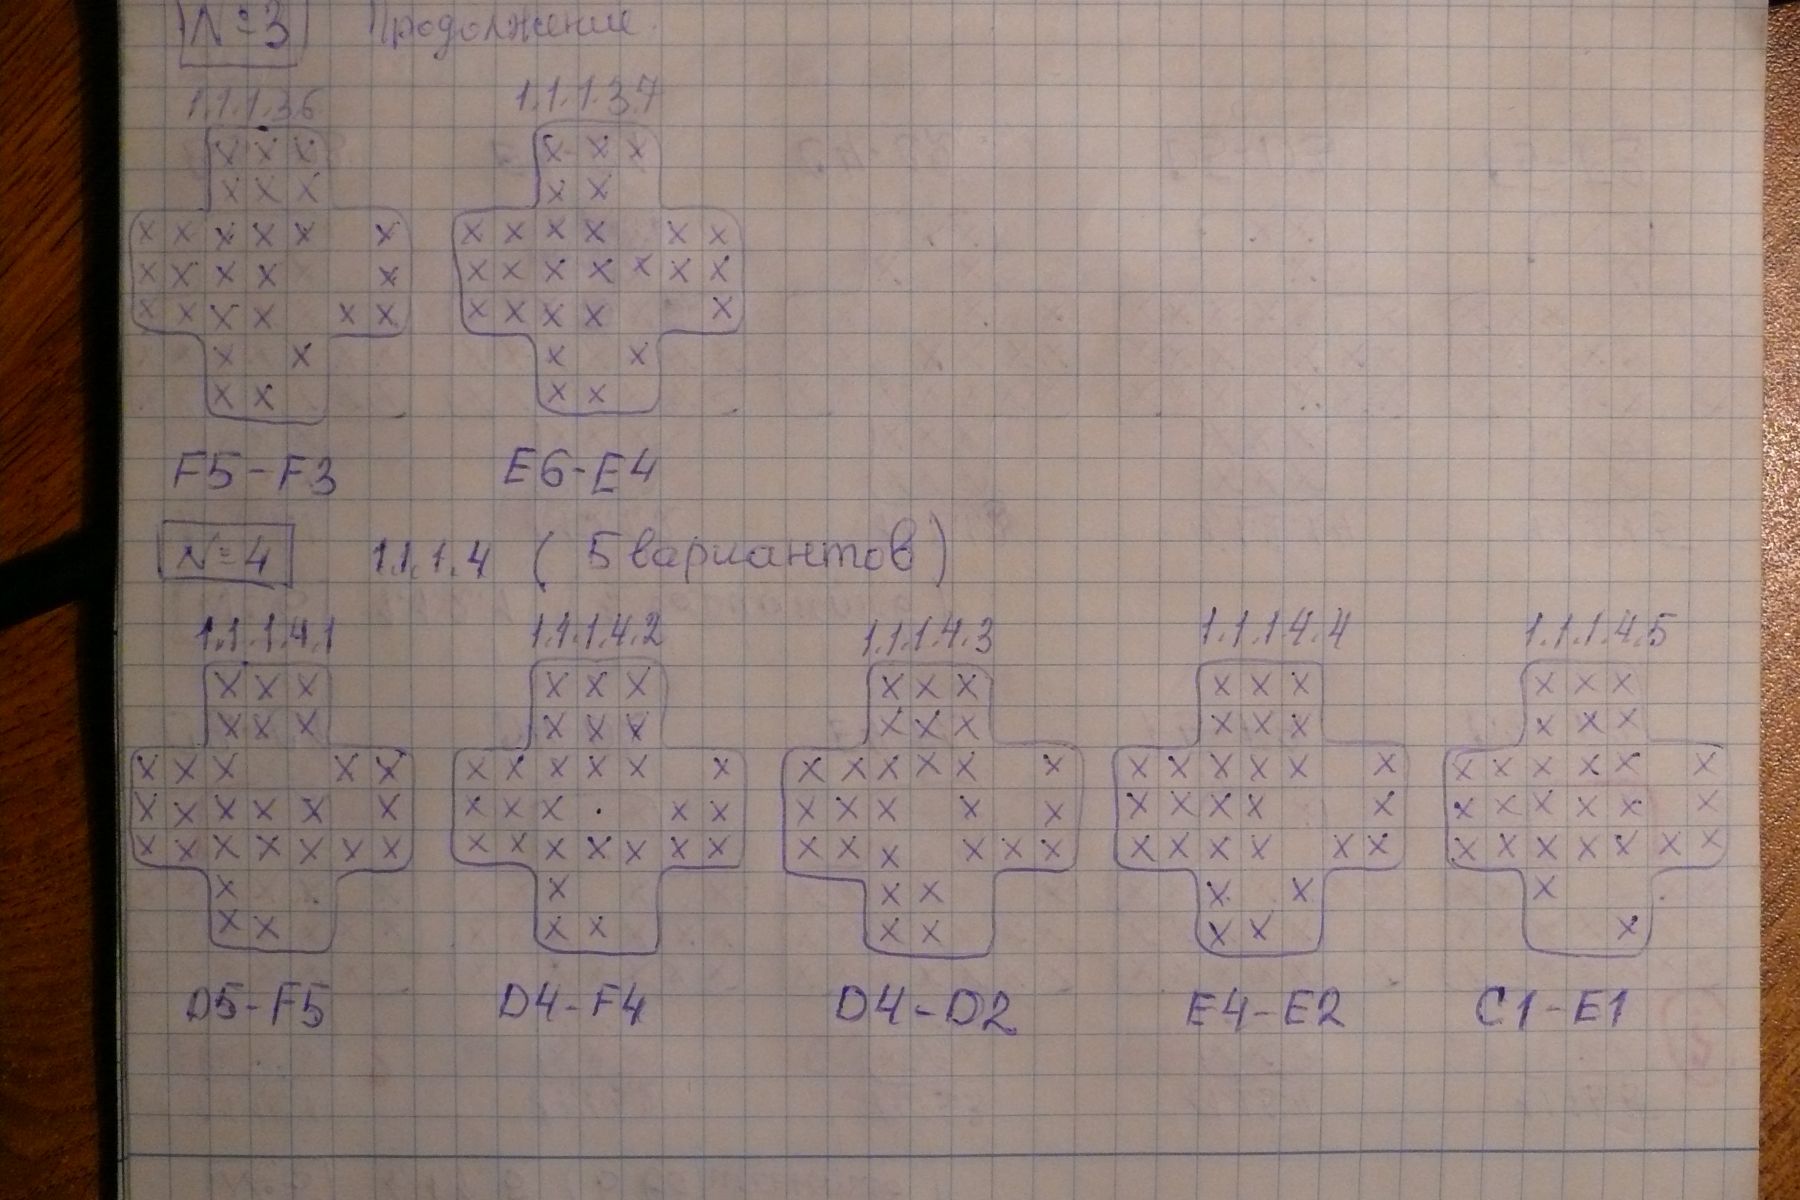 №3 Продолжение.
1.1.1.3.6 1.1.1.3.7
x x x x x x
x x x x x
x x x x x x x x x x x x
x x x x x x x x x x x x
x x x x x x x x x x x
x x x x
x x x x
F5-F3 E6-E4
№4 1.1.1.4 (5 вариантов)
1.1.1.4.1 1.1.1.4.2 1.1.1.4.3 1.1.1.4.4 1.1.1.4.5
x x x x x x x x x x x x x x x
x x x x x x x x x x x x x x x
x x x x x x x x x x x x x x x x x x x x x x x x x x x x x
x x x x x x x x x x x x x x x x x x x x x x x x x x x
x x x x x x x x x x x x x x x x x x x x x x x x x x x x x x x x x x
x x x x x x x
x x x x x x x x x
D5-F5 D4-F4 D4-D2 E4-E2 C1-E1